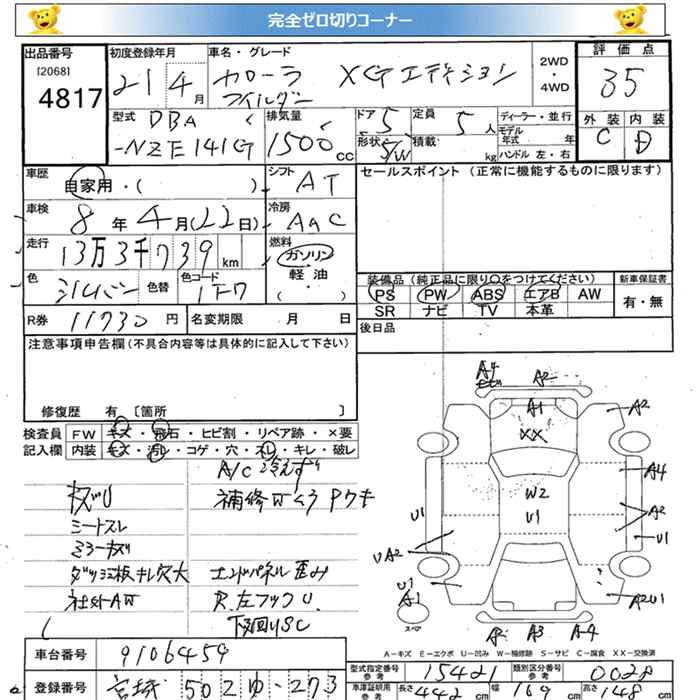 完全ゼロ切りコーナー
出品番号 初度登録年月 車名・グレード 2WD・4WD 評価点
[2068]
4817
21 4月 カローラフィルダー XGエディション 35
型式 排気量 ドア 5 定員 5人 ディーラー・並行 外装 内装
DBA
-NZE141G 1500cc 形状 S/W 積載 kg モデル年式 年 C D
ハンドル 左・右
車歴 自家用・( ) シフト AT セールスポイント (正常に機能するものに限ります)
車検 8年4月(22日) 冷房 AAC
走行 13万3千739km 燃料 ガソリン
軽・油
( ・ )
色 シルバー 色替 色コード 1F7 装備品(純正品に限り○をつけてください) 新車保証書
PS PW ABS エアB AW 有・無
SR ナビ TV 本革
R券 11730円 名変期限 月 日 後日品
注意事項申告欄(不具合内容等は具体的に記入して下さい)
修復歴 有 [箇所 ]
検査員 FW キズ・飛石・ヒビ割・リペア跡・×要
記入欄 内装 キズ・汚れ・コゲ・穴・スレ・キレ・破レ
A/C 冷えず
キズU 補修ワムラ Pサキ
シートスレ
ミラーキズ
ダッシュ板キレ穴大 エンドパネル歪み
社外AW R.左フックU
下回りSC
A4
A2
A1
XX
A2
A4
W2
U1
A2
U1
U1
UA2
U1
A1
スペア
A2U1
A2 A3 A4
A-キズ E-エクボ U-凹み W-補修跡 S-サビ C-腐食 XX-交換済
車台番号 9106459 型式指定番号 参考 15421 類別区分番号 参考 0028
登録番号 宮城 502 ゆ・273 車庫証明用 参考 長さ 442cm 幅 169cm 高さ 148cm